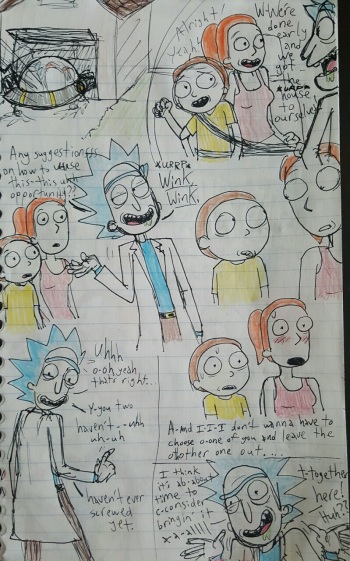 Alright!
Yeah!
W-We're
done
early
and
we
got
the
*URRP*
house
to
ourselves
Any suggestionsss
on how to
this-this
opportunity??
*URRP*
Wink,
Wink.
Uhhh
o-oh yeah,
thats right...
Y-you two
haven't...-uhh
uh-uh
haven't ever
screwed
yet.
A-and I-I-I don't wanna have to
choose o-one of you and leave the
other one out....
I think
it's ab-about
time to
c-consider
bringin' it
t-together
here.
Huh?